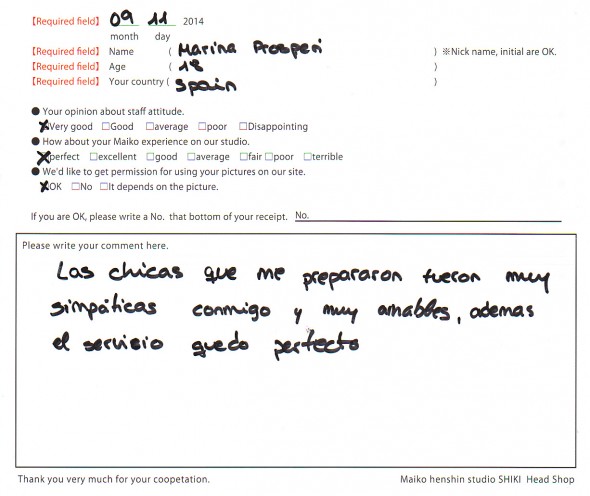 【Required field】 09 11 2014
month day
【Required field】 Name ( Marina Prosperi ) ※Nick name, initial are OK.
【Required field】 Age ( 18 )
【Required field】 Your country ( Spain )
● Your opinion about staff attitude.
☒Very good □Good □average □poor □Disappointing
● How about your Maiko experience on our studio.
☒perfect □excellent □good □average □fair □poor □terrible
● We'd like to get permission for using your pictures on our site.
☒OK □No □It depends on the picture.
If you are OK, please write a No. that bottom of your receipt. No.
Please write your comment here.
Las chicas que me prepararon fueron muy
simpáticas conmigo y muy amables, ademas
el servicio quedo perfecto
Thank you very much for your coopetation. Maiko henshin studio SHIKI Head Shop